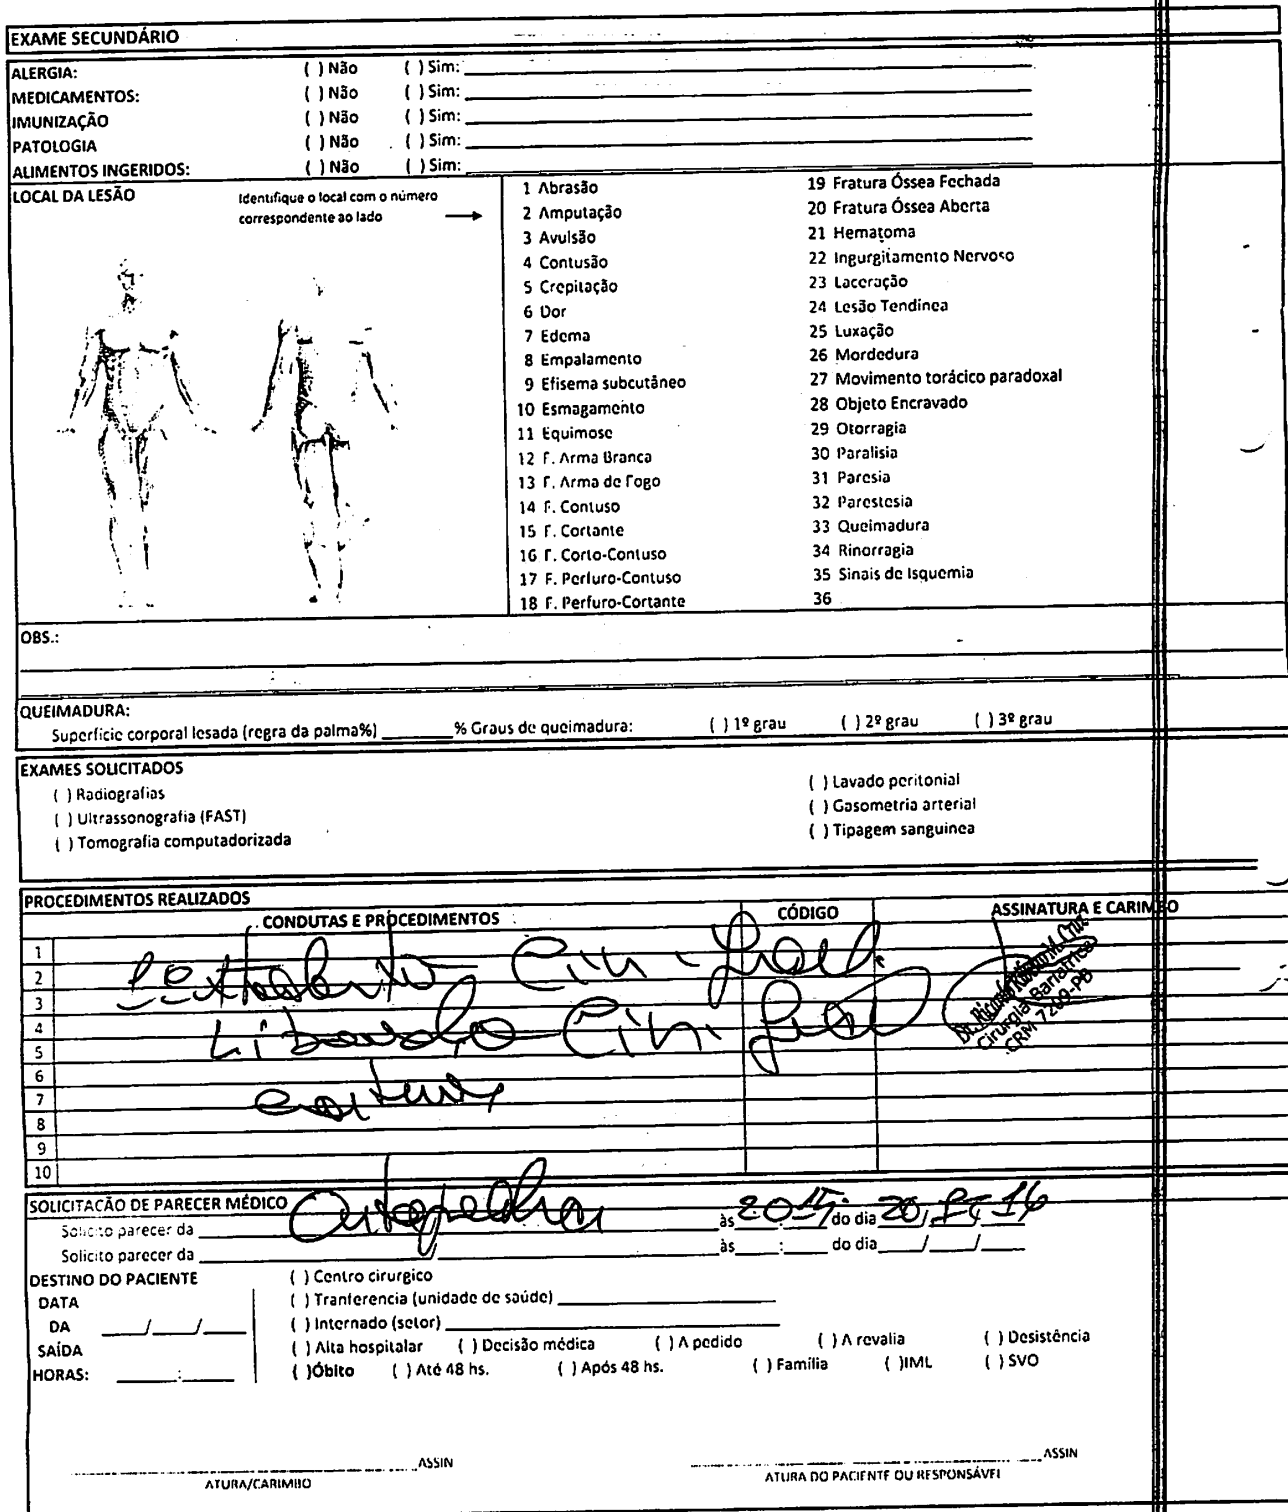 EXAME SECUNDÁRIO
ALERGIA: ( ) Não ( ) Sim:
MEDICAMENTOS: ( ) Não ( ) Sim:
IMUNIZAÇÃO ( ) Não ( ) Sim:
PATOLOGIA ( ) Não ( ) Sim:
ALIMENTOS INGERIDOS: ( ) Não ( ) Sim:
LOCAL DA LESÃO
Identifique o local com o número
correspondente ao lado
1 Abrasão
2 Amputação
3 Avulsão
4 Contusão
5 Crepitação
6 Dor
7 Edema
8 Empalamento
9 Efisema subcutâneo
10 Esmagamento
11 Equimose
12 F. Arma Branca
13 F. Arma de Fogo
14 F. Contuso
15 F. Cortante
16 F. Corto-Contuso
17 F. Perfuro-Contuso
18 F. Perfuro-Cortante
19 Fratura Óssea Fechada
20 Fratura Óssea Aberta
21 Hematoma
22 Ingurgitamento Nervoso
23 Laceração
24 Lesão Tendinea
25 Luxação
26 Mordedura
27 Movimento torácico paradoxal
28 Objeto Encravado
29 Otorragia
30 Paralisia
31 Paresia
32 Parestesia
33 Queimadura
34 Rinorragia
35 Sinais de Isquemia
36
OBS.:
QUEIMADURA:
Superficie corporal lesada (regra da palma%) ________% Graus de queimadura: ( ) 1º grau ( ) 2º grau ( ) 3º grau
EXAMES SOLICITADOS
( ) Radiografias
( ) Ultrassonografia (FAST)
( ) Tomografia computadorizada
( ) Lavado peritonial
( ) Gasometria arterial
( ) Tipagem sanguinea
PROCEDIMENTOS REALIZADOS
CONDUTAS E PROCEDIMENTOS CÓDIGO ASSINATURA E CARIMBO
1
2
3
4
5
6
7
8
9
10
Cirurgia Bariatrica
CRM 7269-PB
SOLICITAÇÃO DE PARECER MÉDICO
Solicito parecer da Ortopedia às 20:15 do dia 20/ /16
Solicito parecer da ____ às ___:___ do dia ___/___/___
DESTINO DO PACIENTE
DATA
DA ___/___/___
SAÍDA
HORAS: ____:____
( ) Centro cirurgico
( ) Tranferencia (unidade de saúde)
( ) Internado (setor)
( ) Alta hospitalar ( ) Decisão médica ( ) A pedido ( ) A revalia ( ) Desistência
( )Óbito ( ) Até 48 hs. ( ) Após 48 hs. ( ) Família ( )IML ( ) SVO
ASSIN
ATURA/CARIMBO
ASSIN
ATURA DO PACIENTE OU RESPONSÁVEL